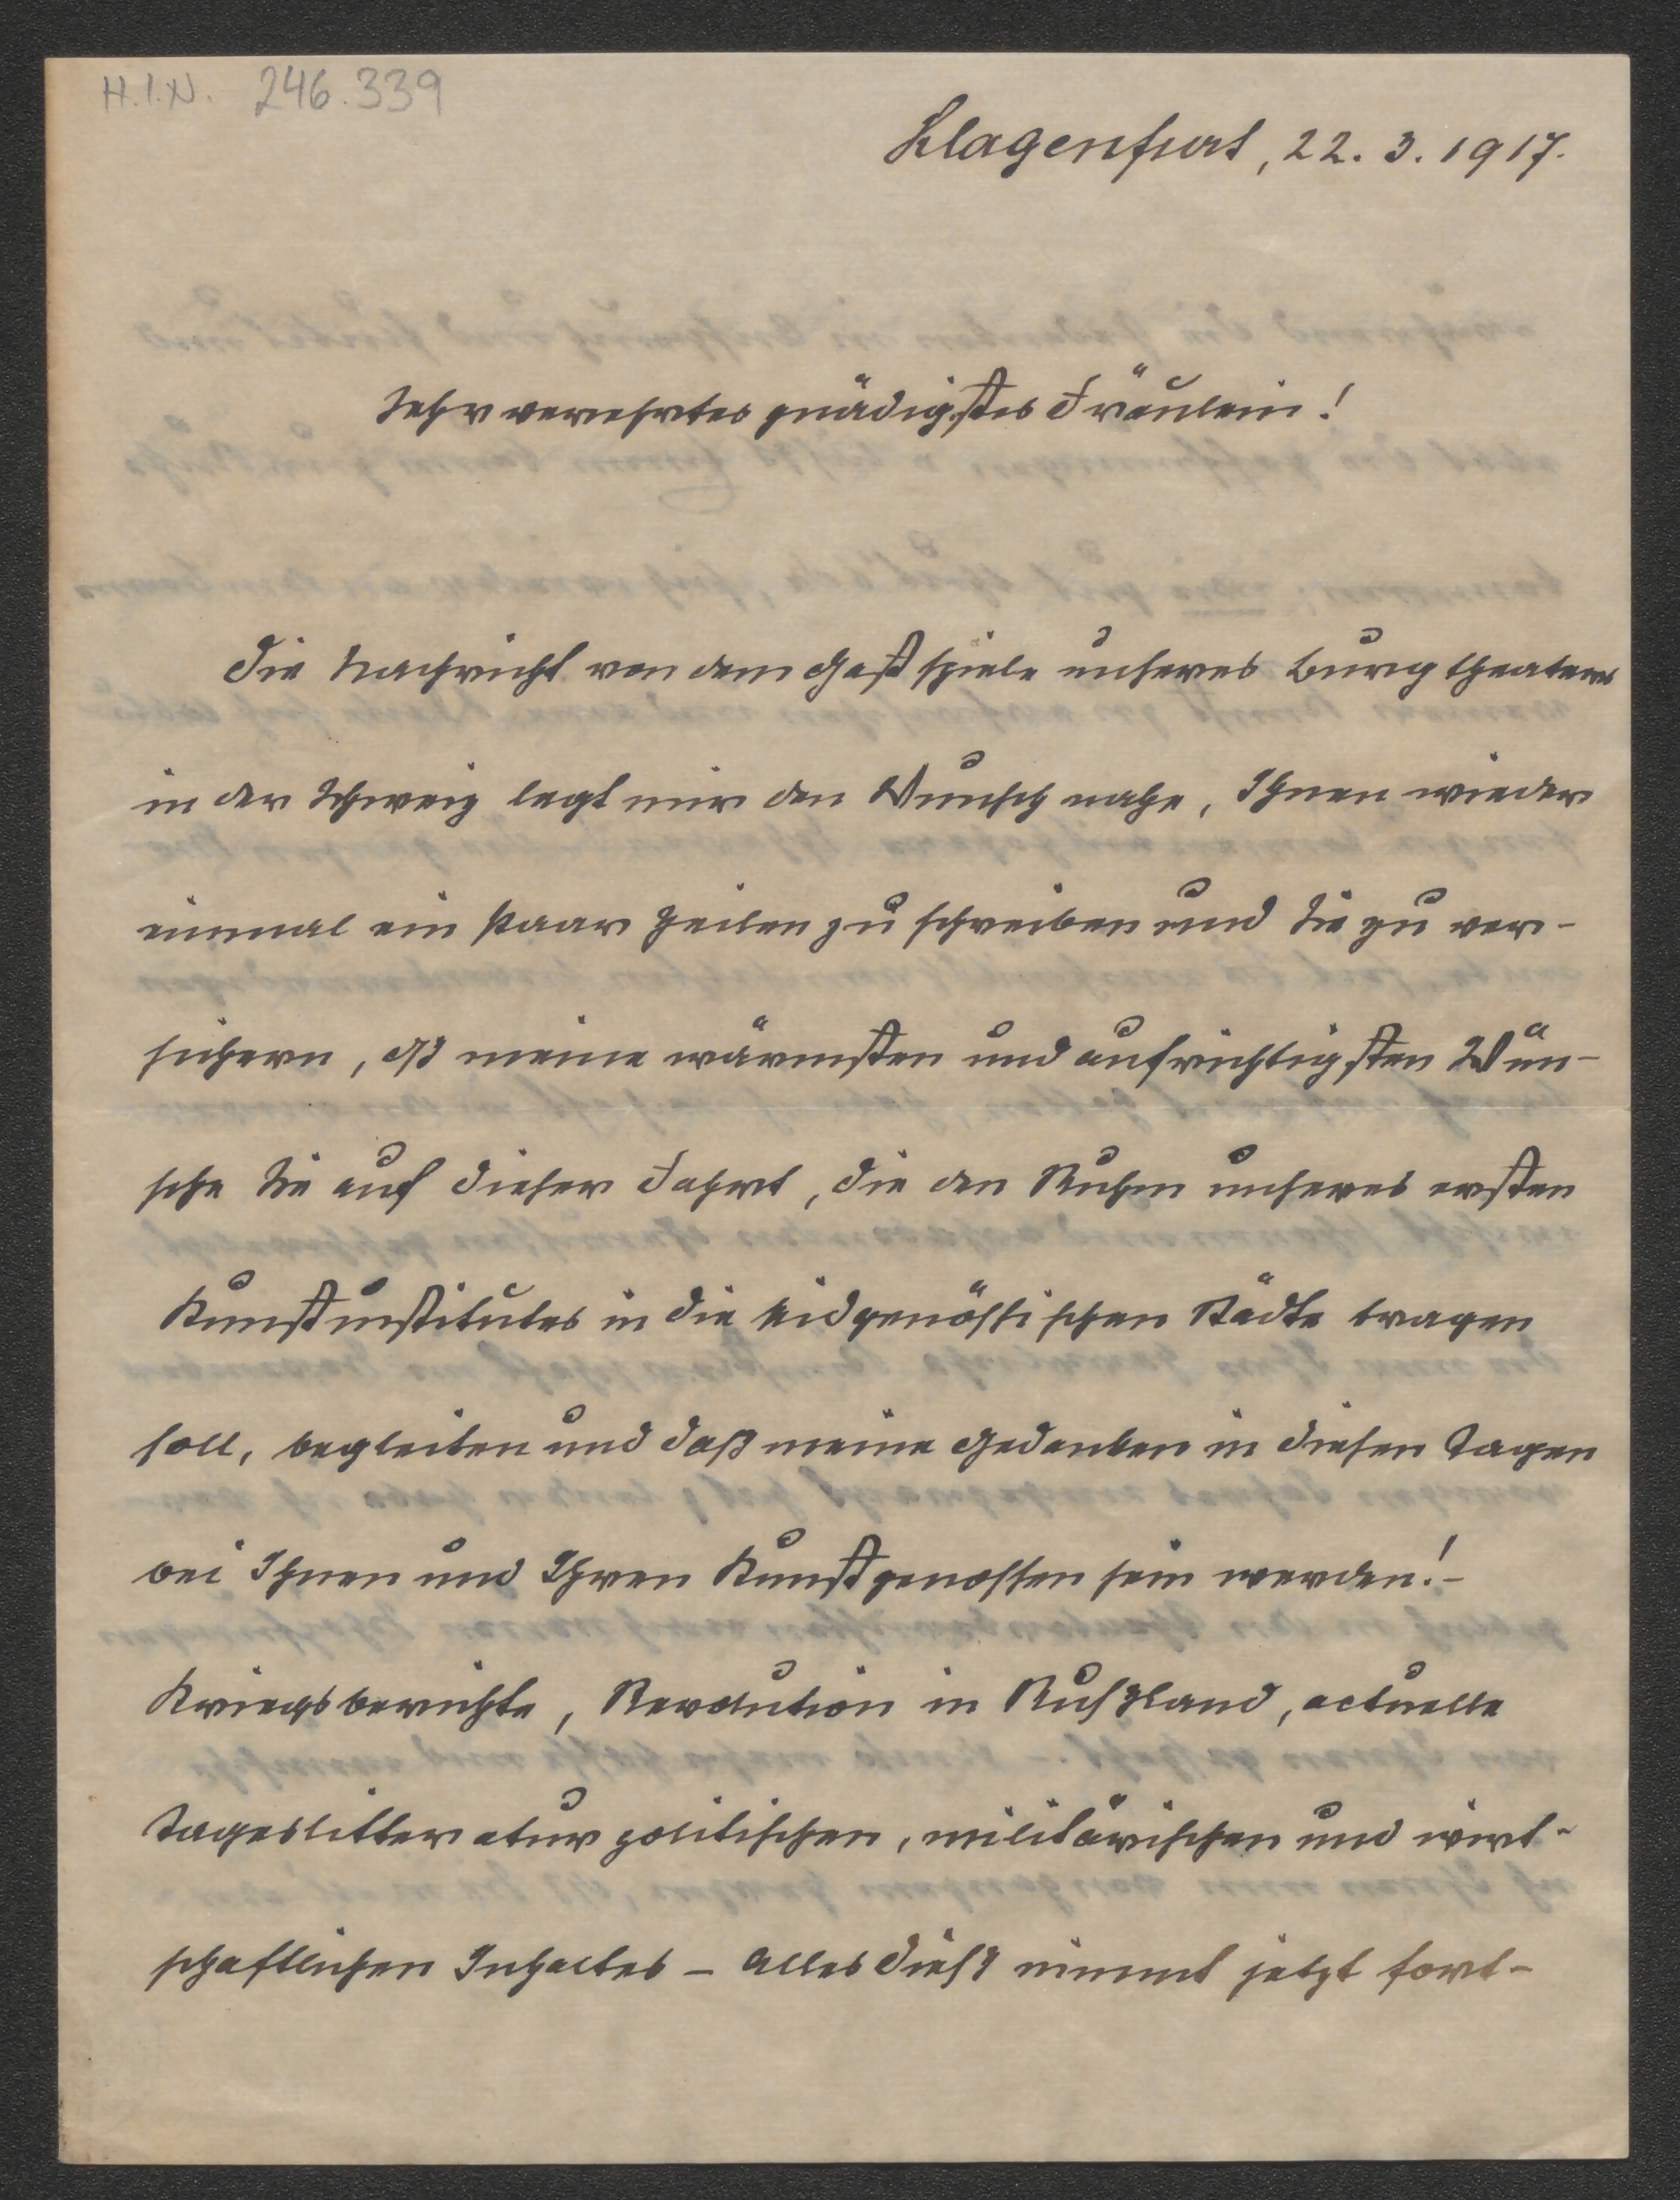 H.I.N. 246.339
Klagenfurt, 22. 3. 1917.
Sehr verehrtes gnädigstes Fräulein!
Die Nachricht von dem Gastspiele unseres Burgtheaters
in der Schweiz legt mir den Wunsch nahe, Ihnen wieder
einmal ein paar Zeilen zu schreiben und Sie zu ver-
sichern, dß meine wärmsten und aufrichtigsten Wün-
sche Sie auf dieser Fahrt, die den Ruhm unseres ersten
Kunstinstitutes in die eidgenössischen Städte tragen
soll, begleiten und daß meine Gedanken in diesen Tagen
bei Ihnen und Ihren Kunstgenossen sein werden! –
Kriegsberichte, Revolution in Rußland, actuelle
Tageslitteratur politischen, militärischen und wirt-
schaftlichen Inhaltes – alles dieß nimmt jetzt fort-